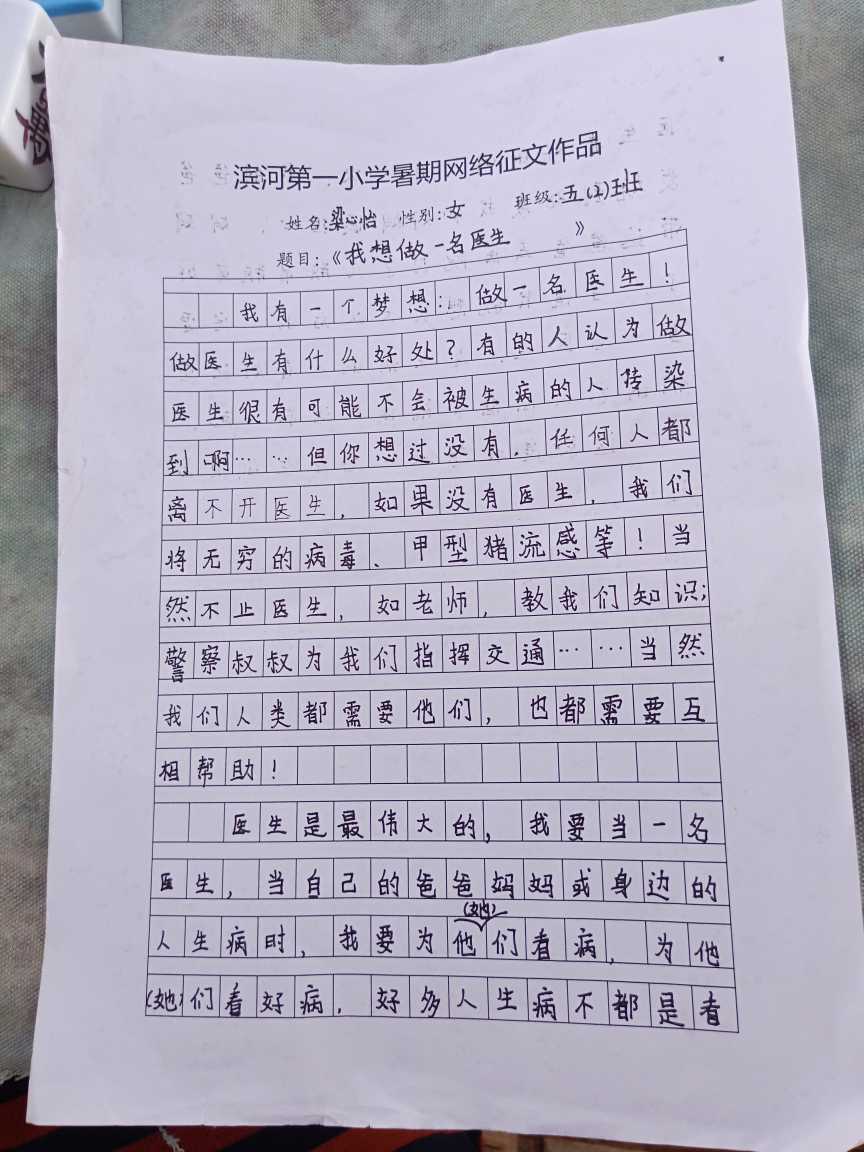 滨河第一小学暑期网络征文作品
姓名:梁心怡 性别:女 班级:五(2)班
题目:《我想做一名医生》
我有一个梦想:做一名医生!
做医生有什么好处?有的人认为做
医生很有可能不会被生病的人传染
到啊……但你想过没有.任何人都
离不开医生,如果没有医生,我们
将无穷的病毒、甲型猪流感等!当
然不止医生,如老师,教我们知识;
警察叔叔为我们指挥交通……当然
我们人类都需要他们,也都需要互
相帮助!
医生是最伟大的,我要当一名
医生,当自己的爸爸妈妈或身边的
人生病时,我要为他(她)们看病,为他
(她)们看好病.好多人生病不都是看